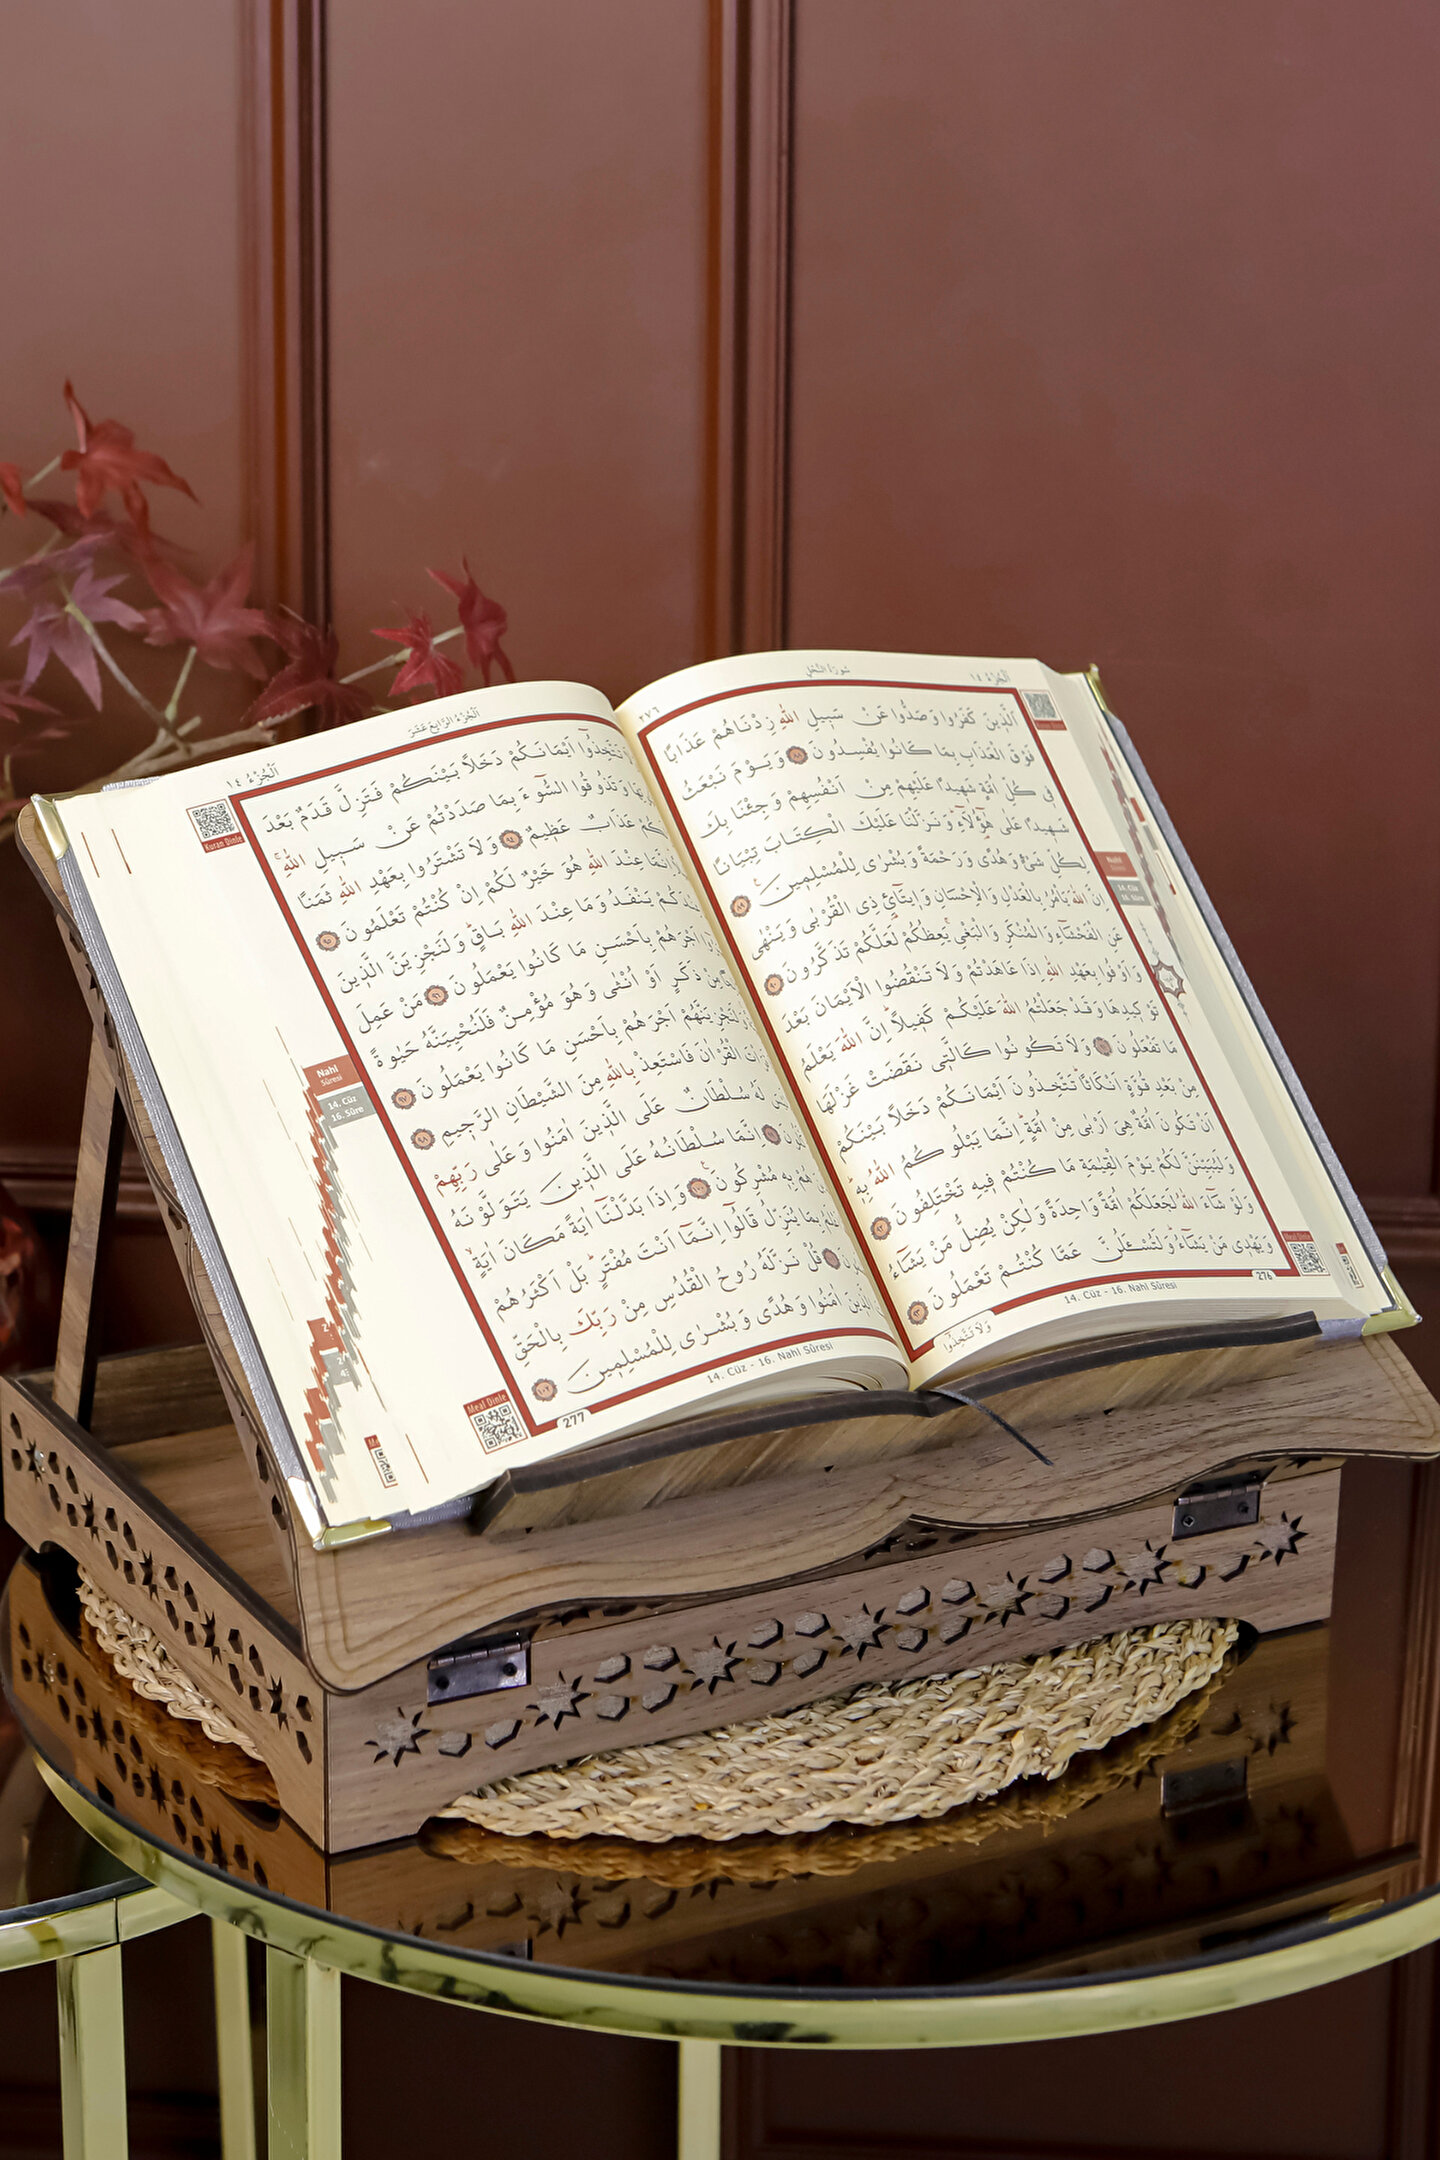 سُورَةُ النَّحْلِ
اَلْجُزْءُ ١٤
٢٧٦
اَلَّذِينَ كَفَرُوا وَصَدُّوا عَنْ سَبِيلِ اللّٰهِ زِدْنَاهُمْ عَذَابًا
فَوْقَ الْعَذَابِ بِمَا كَانُوا يُفْسِدُونَ ٨٨ وَيَوْمَ نَبْعَثُ
فِي كُلِّ اُمَّةٍ شَهِيدًا عَلَيْهِمْ مِنْ اَنْفُسِهِمْ وَجِئْنَا بِكَ
شَهِيدًا عَلٰى هٰٓؤُ۬لَٓاءِ وَنَزَّلْنَا عَلَيْكَ الْكِتَابَ تِبْيَانًا
لِكُلِّ شَيْءٍ وَهُدًى وَرَحْمَةً وَبُشْرٰى لِلْمُسْلِمِينَ ٨٩
اِنَّ اللّٰهَ يَأْمُرُ بِالْعَدْلِ وَالْاِحْسَانِ وَاِيتَٓائِ ذِي الْقُرْبٰى وَيَنْهٰى
عَنِ الْفَحْشَٓاءِ وَالْمُنْكَرِ وَالْبَغْيِ يَعِظُكُمْ لَعَلَّكُمْ تَذَكَّرُونَ ٩٠
وَاَوْفُوا بِعَهْدِ اللّٰهِ اِذَا عَاهَدْتُمْ وَلَا تَنْقُضُوا الْاَيْمَانَ بَعْدَ
تَوْكِيدِهَا وَقَدْ جَعَلْتُمُ اللّٰهَ عَلَيْكُمْ كَفِيلًا اِنَّ اللّٰهَ يَعْلَمُ
مَا تَفْعَلُونَ ٩١ وَلَا تَكُونُوا كَالَّتِي نَقَضَتْ غَزْلَهَا
مِنْ بَعْدِ قُوَّةٍ اَنْكَاثًا تَتَّخِذُونَ اَيْمَانَكُمْ دَخَلًا بَيْنَكُمْ
اَنْ تَكُونَ اُمَّةٌ هِيَ اَرْبٰى مِنْ اُمَّةٍ اِنَّمَا يَبْلُوكُمُ اللّٰهُ بِهِ
وَلَيُبَيِّنَنَّ لَكُمْ يَوْمَ الْقِيٰمَةِ مَا كُنْتُمْ فِيهِ تَخْتَلِفُونَ ٩٢
وَلَوْ شَٓاءَ اللّٰهُ لَجَعَلَكُمْ اُمَّةً وَاحِدَةً وَلٰكِنْ يُضِلُّ مَنْ يَشَٓاءُ
وَيَهْدِي مَنْ يَشَٓاءُ وَلَتُسْـَٔلُنَّ عَمَّا كُنْتُمْ تَعْمَلُونَ ٩٣
Nahl
14. Cüz
16. Sûre
Meal Dinle
276
14. Cüz - 16. Nahl Sûresi
وَلَا تَتَّخِذُٓوا
اَلْجُزْءُ الرَّابِعَ عَشَرَ
اَلْجُزْءُ ١٤
Kuran Dinle
تَتَّخِذُٓوا اَيْمَانَكُمْ دَخَلًا بَيْنَكُمْ فَتَزِلَّ قَدَمٌ بَعْدَ
وَتَذُوقُوا السُّٓوءَ بِمَا صَدَدْتُمْ عَنْ سَبِيلِ اللّٰهِ
عَذَابٌ عَظِيمٌ ٩٤ وَلَا تَشْتَرُوا بِعَهْدِ اللّٰهِ ثَمَنًا
اِنَّمَا عِنْدَ اللّٰهِ هُوَ خَيْرٌ لَكُمْ اِنْ كُنْتُمْ تَعْلَمُونَ ٩٥
يَنْفَدُ وَمَا عِنْدَ اللّٰهِ بَاقٍ وَلَنَجْزِيَنَّ الَّذِينَ
اَجْرَهُمْ بِاَحْسَنِ مَا كَانُوا يَعْمَلُونَ ٩٦ مَنْ عَمِلَ
مِنْ ذَكَرٍ اَوْ اُنْثٰى وَهُوَ مُؤْمِنٌ فَلَنُحْيِيَنَّهُ حَيٰوةً
وَلَنَجْزِيَنَّهُمْ اَجْرَهُمْ بِاَحْسَنِ مَا كَانُوا يَعْمَلُونَ ٩٧
الْقُرْاٰنَ فَاسْتَعِذْ بِاللّٰهِ مِنَ الشَّيْطَانِ الرَّجِيمِ ٩٨
لَهُ سُلْطَانٌ عَلَى الَّذِينَ اٰمَنُوا وَعَلٰى رَبِّهِمْ
اِنَّمَا سُلْطَانُهُ عَلَى الَّذِينَ يَتَوَلَّوْنَهُ
هُمْ بِهِ مُشْرِكُونَ ١٠٠ وَاِذَا بَدَّلْنَٓا اٰيَةً مَكَانَ اٰيَةٍ
بِمَا يُنَزِّلُ قَالُٓوا اِنَّمَٓا اَنْتَ مُفْتَرٍ بَلْ اَكْثَرُهُمْ
قُلْ نَزَّلَهُ رُوحُ الْقُدُسِ مِنْ رَبِّكَ بِالْحَقِّ
اٰمَنُوا وَهُدًى وَبُشْرٰى لِلْمُسْلِمِينَ ١٠٢
Nahl
Sûresi
14. Cüz
16. Sûre
Meal Dinle
277
14. Cüz - 16. Nahl Sûresi